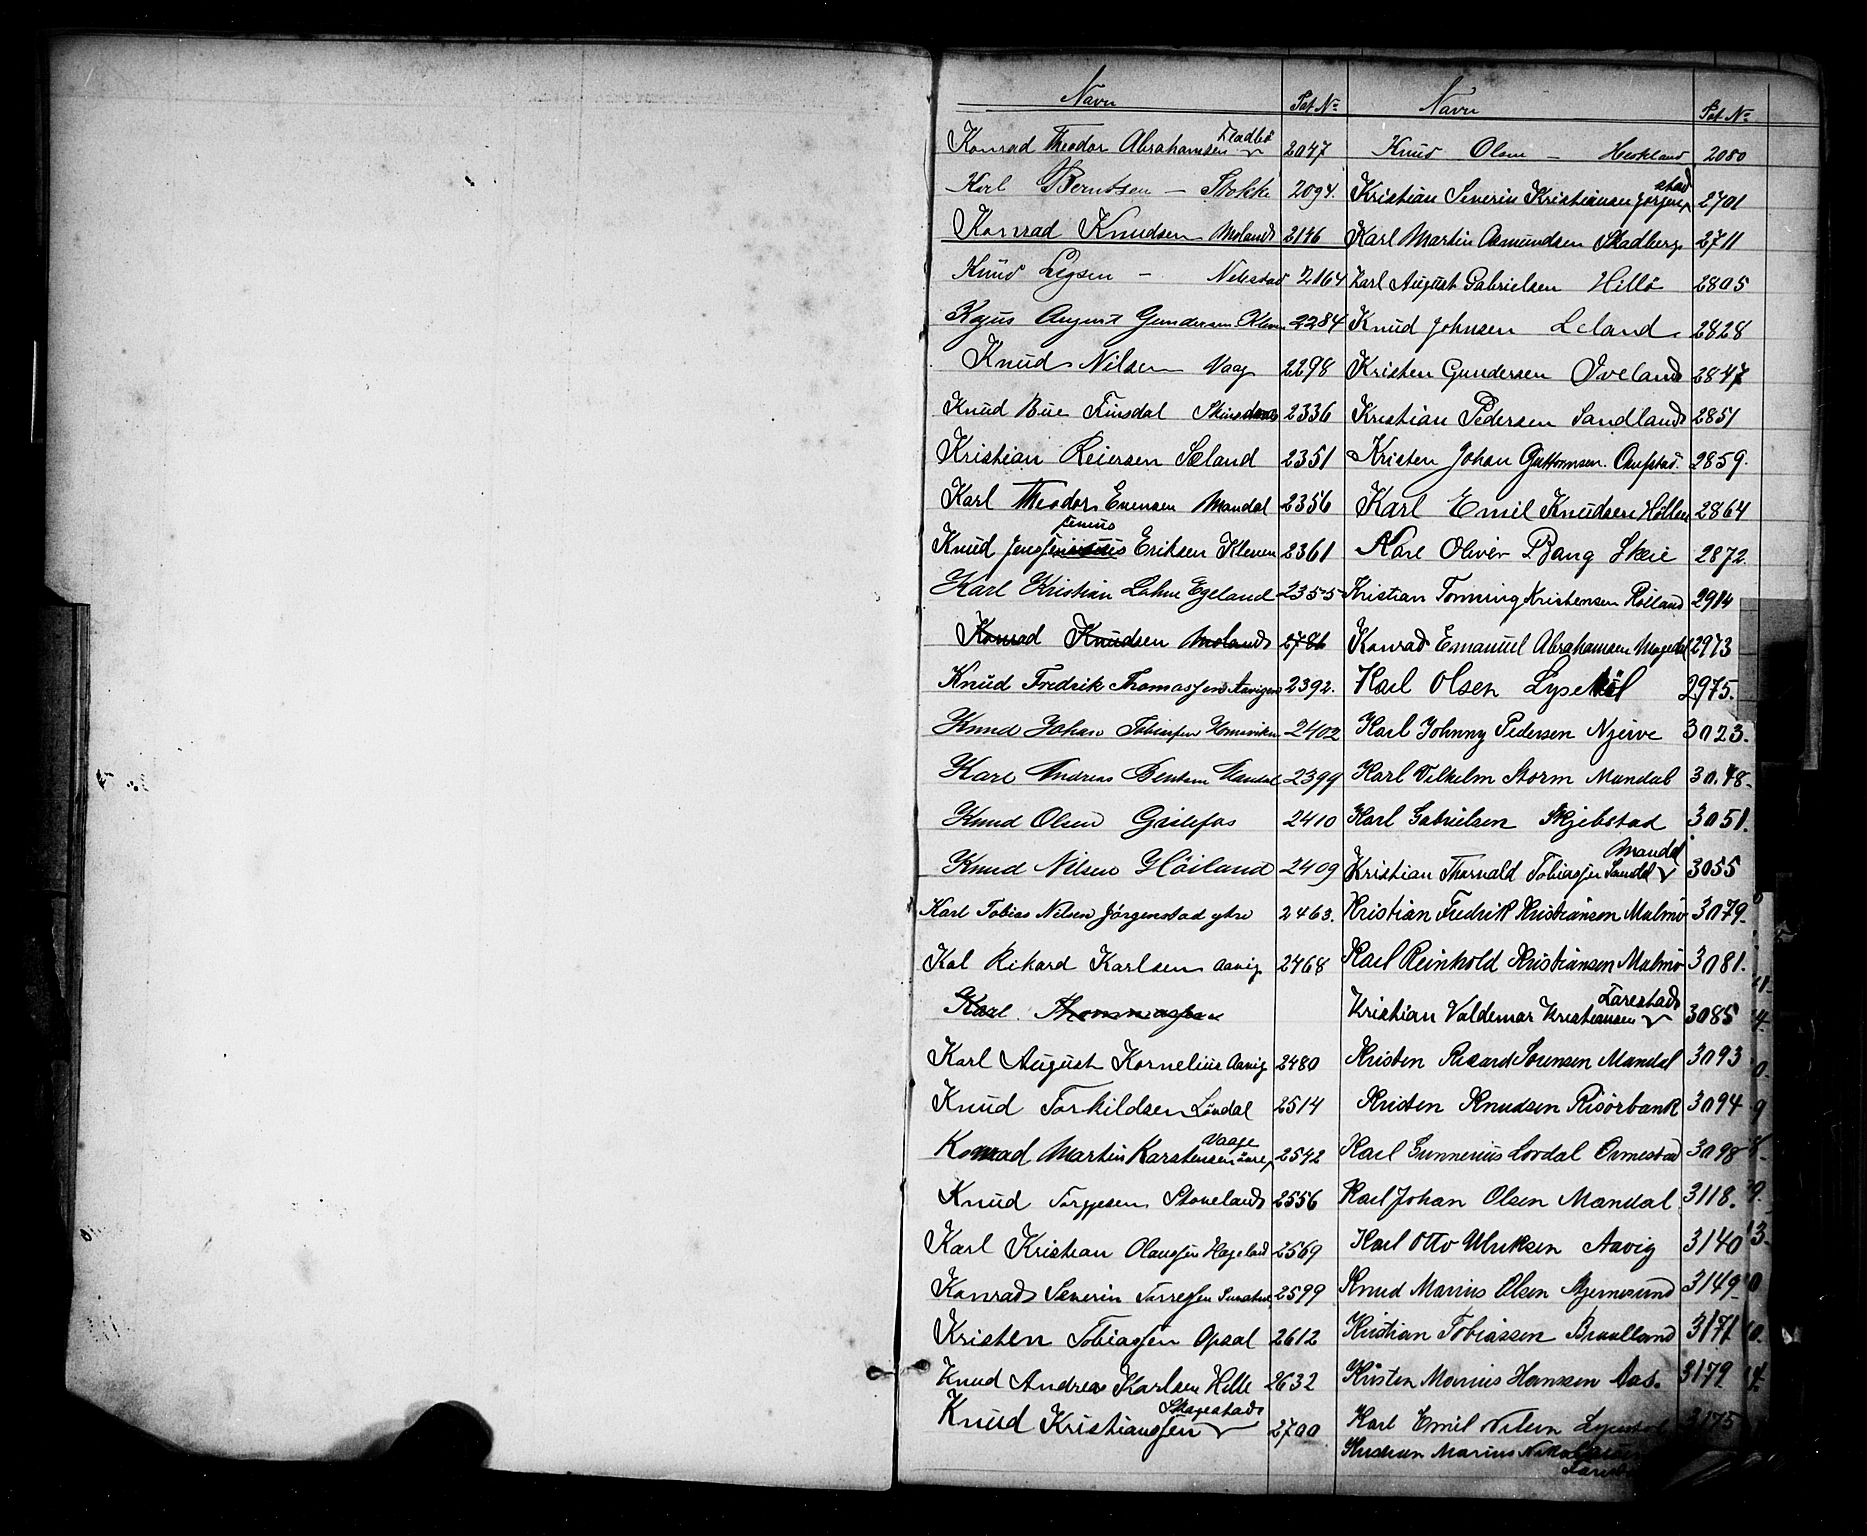 Navn Pat No Navn Pat No
Konrad Theodor Abrahamsen Fladbö 2047
Karl Berntsen - Stokke 2094.
Konrad Knudsen Moland 2146
Knud Legsen - 2164
Kajus August Gundersen Kleven 2284
Knud Nilsen Vaag 2298
Knud Bue Finsdal 2336
Kristian Reiersen Sæland 2351
Karl Theodor Evensen Mandal 2356
Knud Jens Junius Eriksen Kleven 2361
Karl Kristian Lohne Egeland 2355
Konrad Knudsen Moland 2786
Knud Fredrik Thomassen Aavigen 2392.
Knud Johan Tobiassen 2402
Karl Andreas Bentsen Mandal 2399
Knud Olsen Gislefos 2410
Knud Nilsen Höiland 2409
Karl Tobias Nilsen Jörgenstad ytre 2463.
Kal Rikard Karlsen Aavig 2468
Karl Thommassen
Karl August Kornelius Aavig 2480
Knud Torkildsen Lövdal 2514
Konrad Martin Karstensen Vaage övre 2542
Knud Torgjesen Stoveland 2556
Karl Kristian Olaussen Hageland 2569
Konrad Severin Torresen 2599
Kristen Tobiassen Opsal 2612
Knud Andreas Karlsen Hille 2632
Knud Kristianssen Skagestad 2700
Knud Olsen - Heskland 2080
Kristian Severin Kristiansen Jörgenstad 2701
Karl Martin Asmundsen Stadberg 2711
Karl August Gabrielsen Hillö 2805
Knud Johnsen Leland 2828
Kristen Gundersen Iveland 2847
Kristian Pedersen Sandland 2851
Kristen Johan Guttormsen 2859.
Karl Emil Knudsen Höllen 2864
Karl Oliver Bang Skeie 2872.
Kristian Tonning Kristensen Röiland 2914
Konrad Emanuel Abrahamsen 2973
Karl Olsen Lyse 2975.
Karl Johnny Pedersen Njerve 3023.
Karl Vilhelm Storm Mandal 3048-
Karl Gabrielsen Skjebstad 3051.
Kristian Thorvald Tobiassen Mandal 3055
Kristian Fredrik Kristiansen Malmö 3079-
Karl Reinhold Kristiansen Malmö 3081.
Kristian Valdemar Kristiansen Tarestad 3085
Kristen Rikard Sörensen Mandal 3093
Kristen Knudsen Risörbank 3094
Karl Gunnerius Lovdal Ormestad 3098
Karl Johan Olsen Mandal 3118.
Karl Otto Ulriksen Aavig 3140
Knud Marius Olsen Stjernesund 3149
Kristian Tobiassen Brualland 3171
Kristen Marius Hanssen Aas. 3179
Karl Emil Nilsen 3175
Kristian Marius